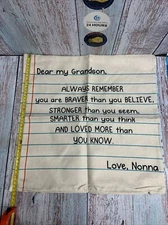 Dear my Grandson,
ALWAYS REMEMBER
you are BRAVER than you BELIEVE,
STRONGER than you seem,
SMARTER than you think
AND LOVED MORE than
YOU KNOW.
Love, Nonna